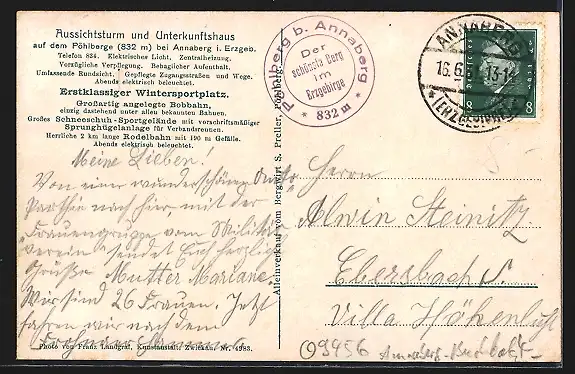 Aussichtsturm und Unterkunftshaus
auf dem Pöhlberge (832 m) bei Annaberg i. Erzgeb.
Telefon 834. Elektrisches Licht, Zentralheizung.
Vorzügliche Verpflegung. Behaglicher Aufenthalt.
Umfassende Rundsicht. Gepflegte Zugangsstraßen und Wege.
Abends elektrisch beleuchtet.
Erstklassiger Wintersportplatz.
Großartig angelegte Bobbahn,
einzig dastehend unter allen bekannten Bahnen.
Großes Schneeschuh-Sportgelände mit vorschriftsmäßiger
Sprunghügelanlage für Verbandsreunen.
Herrliche 2 km lange Rodelbahn mit 190 m Gefälle.
Abends elektrisch beleuchtet.
Meine Lieben.
Von einer wunderschönen Auto
Parthie nach hier mit der
Frauengruppe vom Militär
verein sendet Euch herzlich
Grüße Mutter Mariane.
Wir sind 26 Frauen. Jetzt
fahren wir nach dem
Photo von Franz Landgraf, Kunstanstalt Zwickau. Nr. 4983.
Alleinverkauf vom Bergwirt S. Preller, Pöhlberg
Pöhlberg b. Annaberg
Der
schönste Berg
im
Erzgebirge
* 832 m *
ANNABERG
16.6. 13-14
* (ERZGEBIRGE)
8 8
Herrn
Alwin Steinitz
Ebersbach S.
Villa Höhenluft
09456 Annaberg-Buchholz